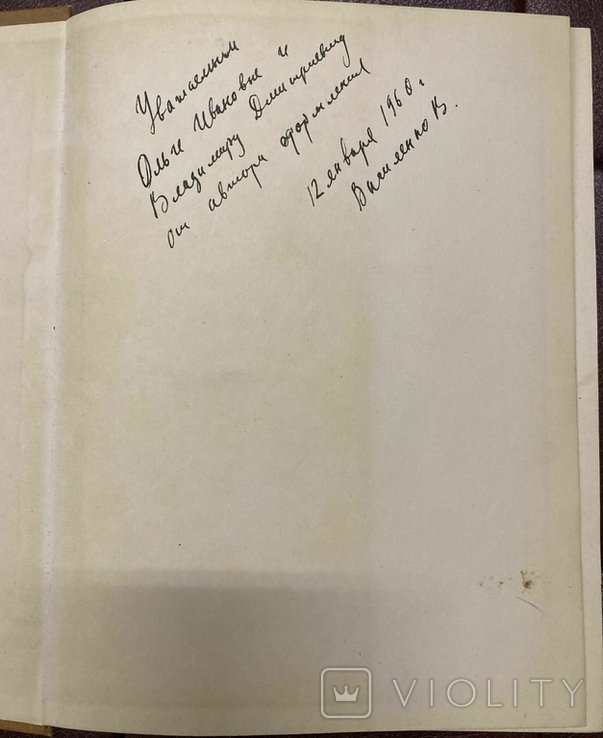 Уважаемым
Ольге Ивановне и
Владимиру Дмитриевичу
от автора оформления
12 января 1960 г.
Василенко В.
VIOLITY